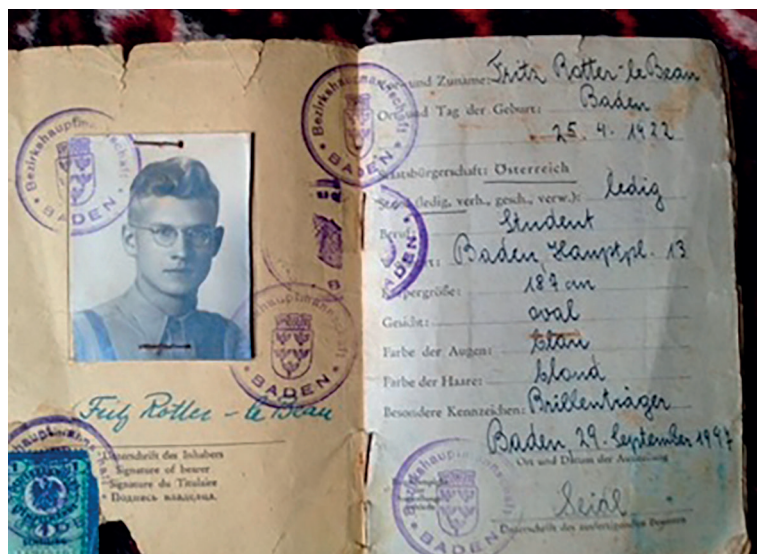 Bezirkshauptmannschaft
BADEN
Bezirkshauptmannschaft
BADEN
BADEN
Bezirkshauptmannschaft
BADEN
Fritz Rotter - le Beau
Unterschrift des Inhabers
Signature of bearer
Signature du Titulaire
Подпись владельца.
und Zuname: Fritz Rotter-le Beau
Ort und Tag der Geburt: Baden
25. 4. 1922
Staatsbürgerschaft: Österreich
(ledig, verh., gesch., verw.): ledig
Beruf: Student
Baden, Hauptpl. 13
Körpergröße: 187 cm
Gesicht: oval
Farbe der Augen: blau
Farbe der Haare: blond
Besondere Kennzeichen: Brillenträger
Baden, 29. September 1947
Ort und Datum der Ausstellung
Bezirkshauptmannschaft
BADEN
Seidl
Unterschrift des ausfertigenden Beamten